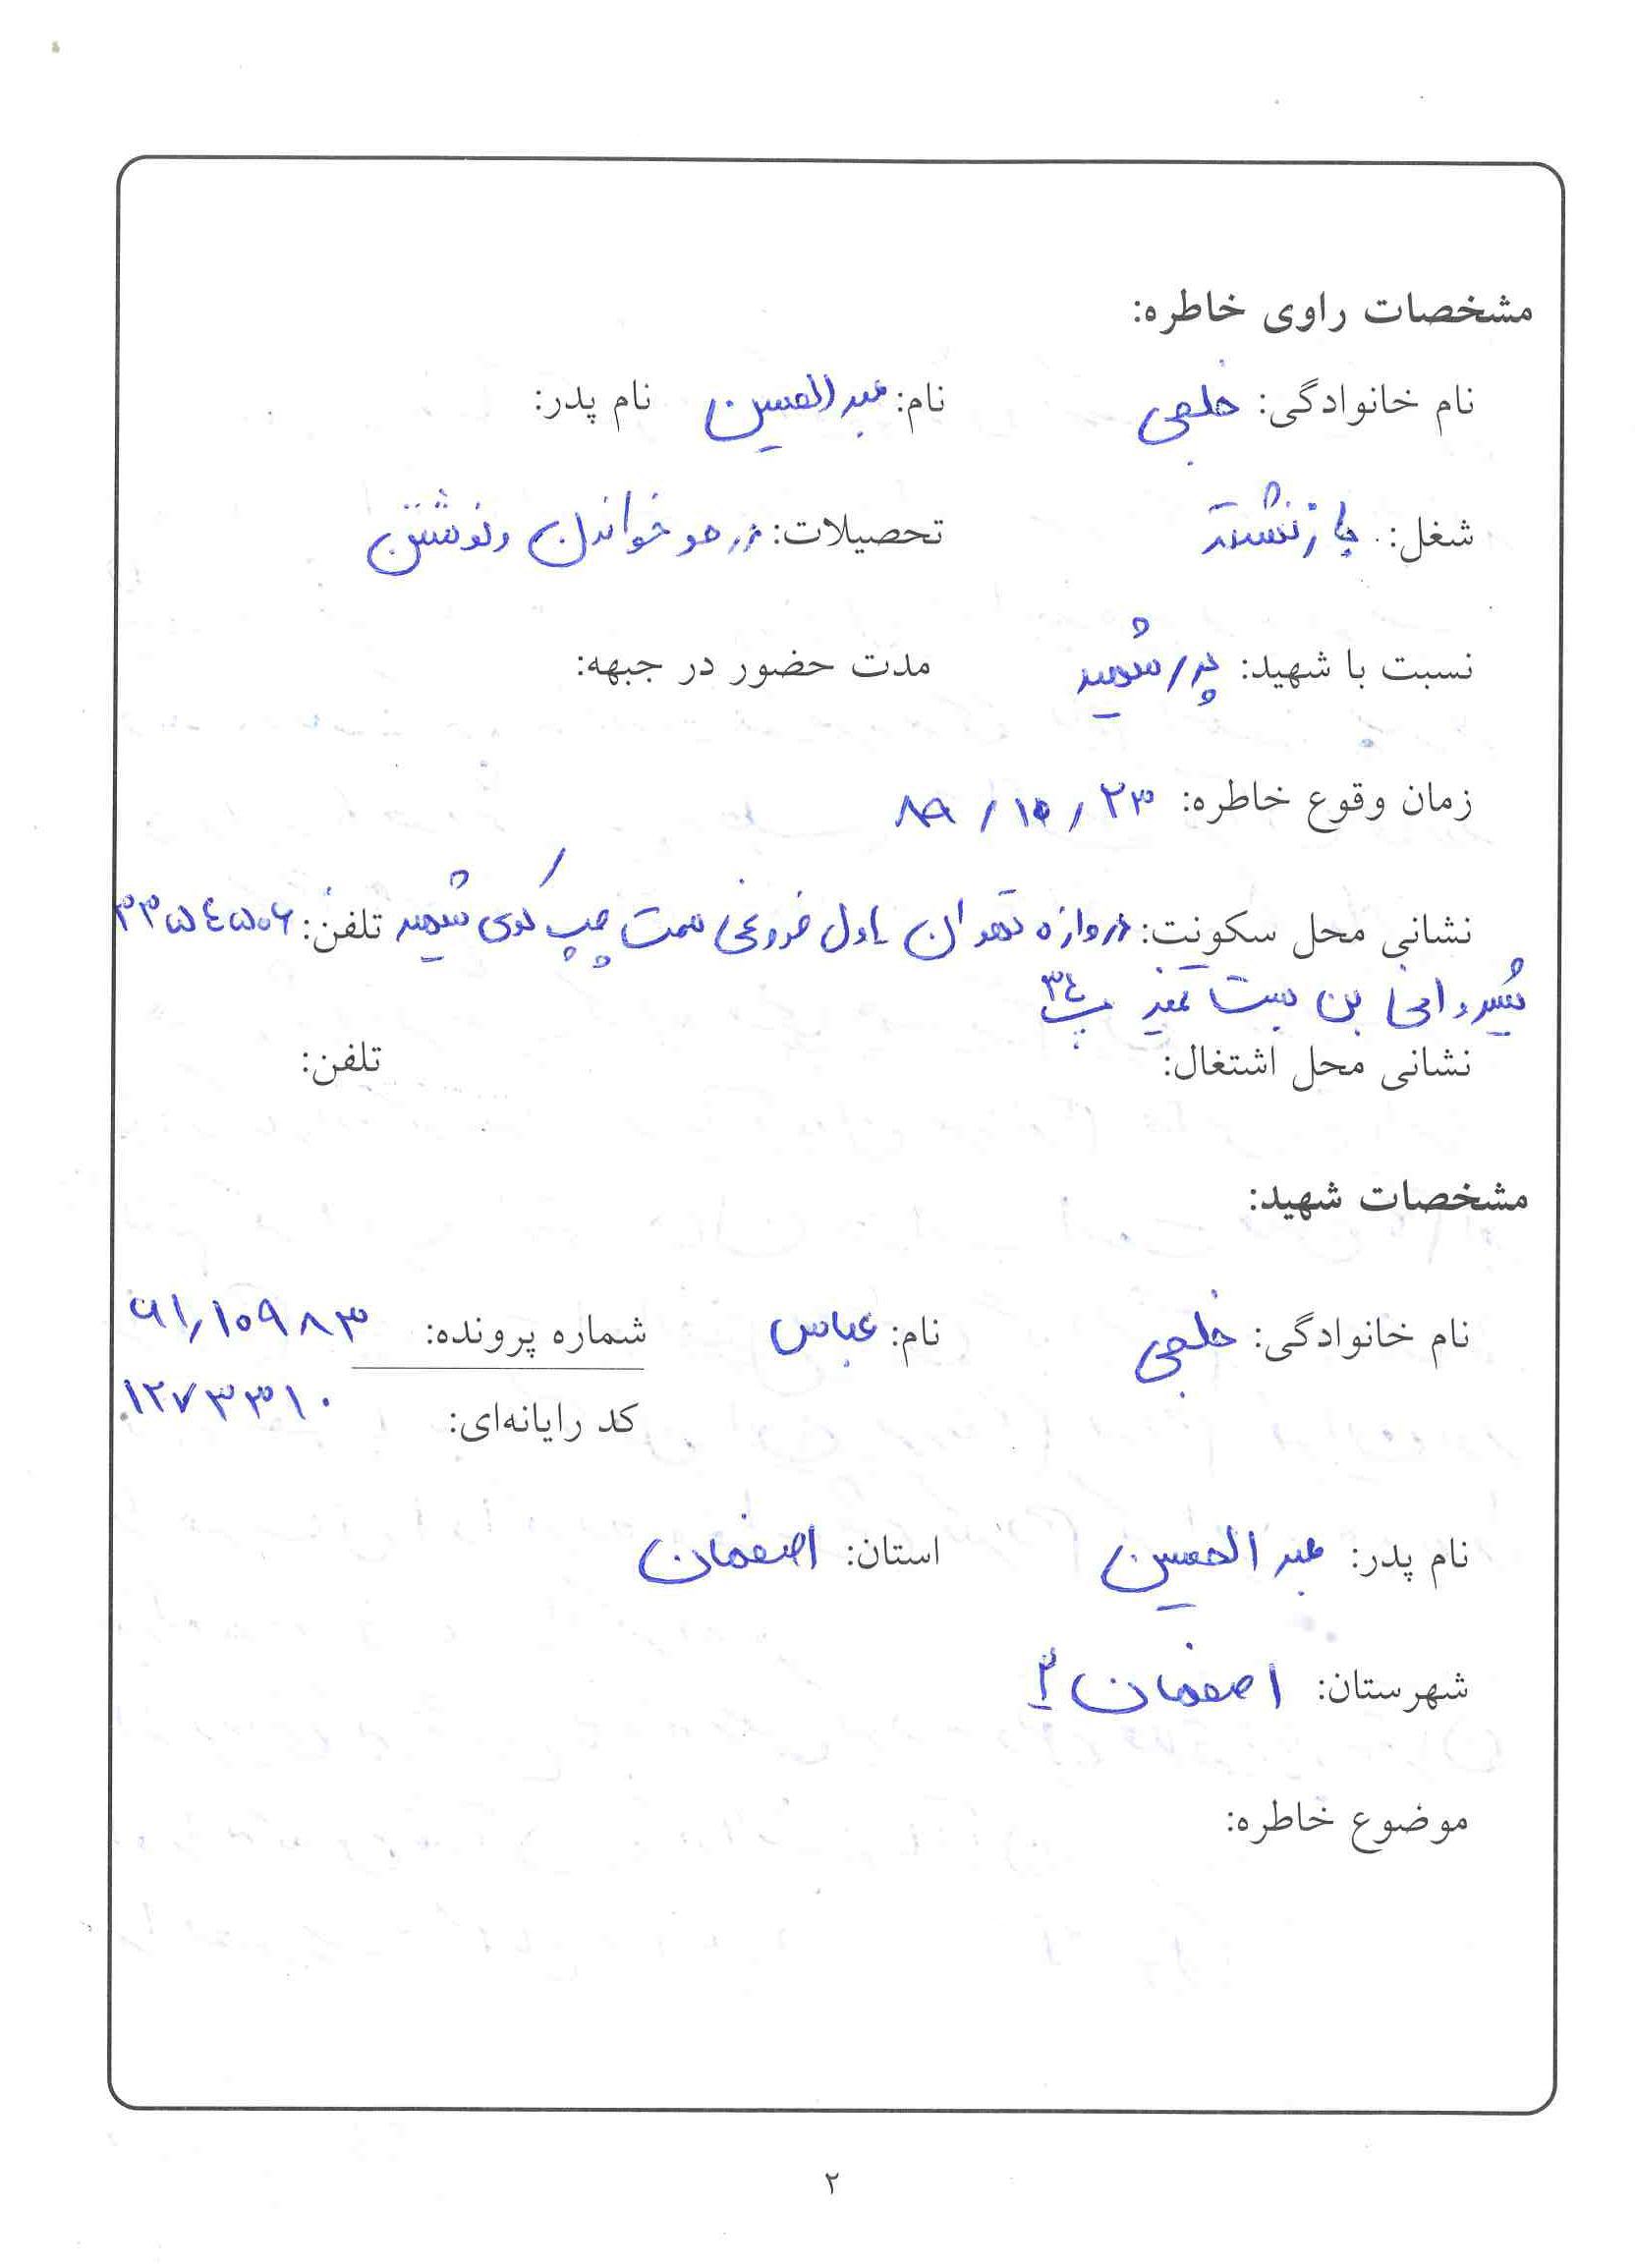 مشخصات راوی خاطره:
نام خانوادگی: خلجی نام: عبدالحسین نام پدر:
شغل: بازنشسته تحصیلات: در حد خواندن ونوشتن
نسبت با شهید: پدر شهید مدت حضور در جبهه:
زمان وقوع خاطره: ۲۳ / ۱۰ / ۸۹
نشانی محل سکونت: دروازه تهران اول فروغی سمت چپ کوی شهید تلفن: ۳۳۵۴۵۰۶
بن بست پ ۳۴
نشانی محل اشتغال: تلفن:
مشخصات شهید:
نام خانوادگی: خلجی نام: عباس شماره پرونده: ۶۱/۱۰۹۸۳
کد رایانه‌ای: ۱۲۷۳۳۱۰
نام پدر: عبدالحسین استان: اصفهان
شهرستان: اصفهان ۲
موضوع خاطره:
۲